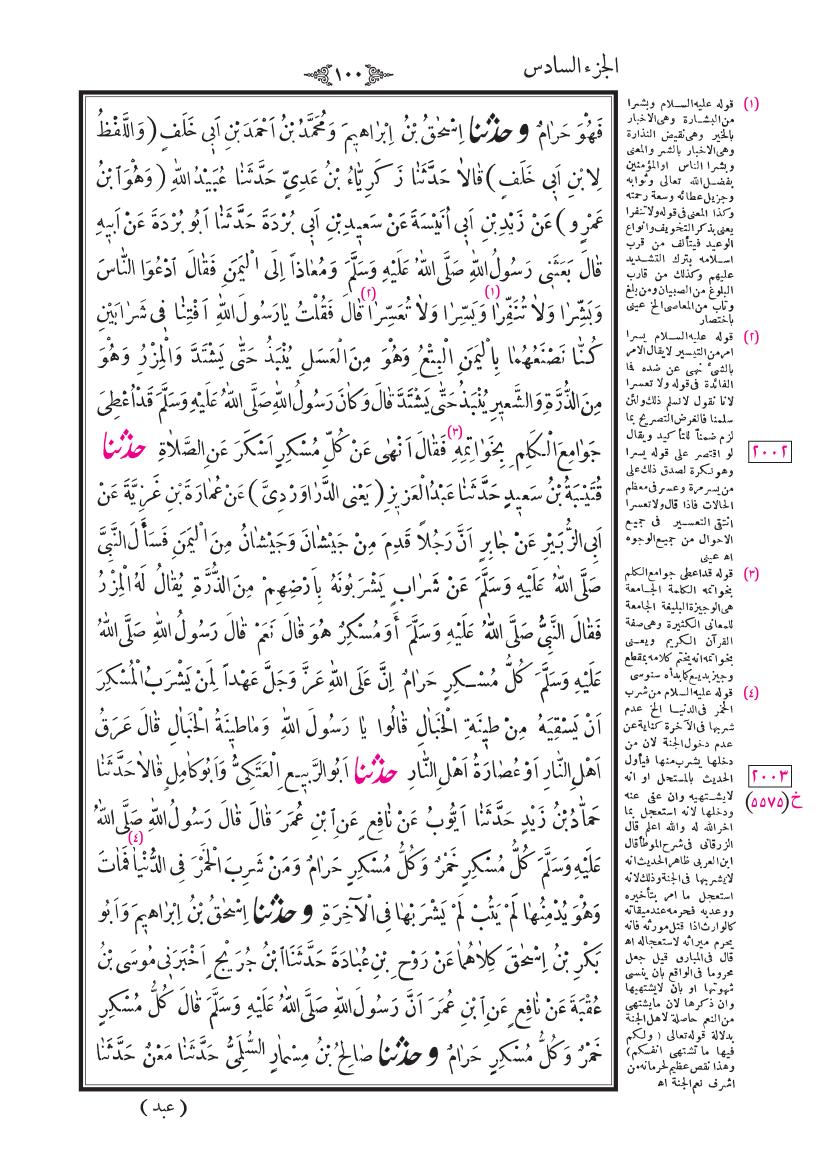 الجزء السادس
١٠٠
فَهُوَ حَرَامٌ و حدثنا اِسْحٰقُ بْنُ اِبْرَاهِيمَ وَمُحَمَّدُ بْنُ اَحْمَدَ بْنِ اَبِى خَلَفٍ (وَاللَّفْظُ
لِابْنِ اَبِى خَلَفٍ) قَالَا حَدَّثَنَا زَكَرِيَّاءُ بْنُ عَدِىٍّ حَدَّثَنَا عُبَيْدُ اللهِ (وَهُوَ ابْنُ
عَمْرٍو) عَنْ زَيْدِ بْنِ اَبِى اُنَيْسَةَ عَنْ سَعِيدِ بْنِ اَبِى بُرْدَةَ حَدَّثَنَا اَبُو بُرْدَةَ عَنْ اَبِيهِ
قَالَ بَعَثَنِى رَسُولُ اللهِ صَلَّى اللهُ عَلَيْهِ وَسَلَّمَ وَمُعَاذاً اِلَى الْيَمَنِ فَقَالَ ادْعُوَا النَّاسَ
وَبَشِّرَا وَلَا تُنَفِّرَا (١) وَيَسِّرَا وَلَا تُعَسِّرَا (٢) قَالَ فَقُلْتُ يَا رَسُولَ اللهِ اَفْتِنَا فِى شَرَابَيْنِ
كُنَّا نَصْنَعُهُمَا بِالْيَمَنِ الْبِتْعُ وَهُوَ مِنَ الْعَسَلِ يُنْبَذُ حَتَّى يَشْتَدَّ وَالْمِزْرُ وَهُوَ
مِنَ الذُّرَةِ وَالشَّعِيرِ يُنْبَذُ حَتَّى يَشْتَدَّ قَالَ وَكَانَ رَسُولُ اللهِ صَلَّى اللهُ عَلَيْهِ وَسَلَّمَ قَدْ اُعْطِىَ
جَوَامِعَ الْكَلِمِ بِخَوَاتِمِهِ (٣) فَقَالَ اَنْهٰى عَنْ كُلِّ مُسْكِرٍ اَسْكَرَ عَنِ الصَّلَاةِ حدثنا
قُتَيْبَةُ بْنُ سَعِيدٍ حَدَّثَنَا عَبْدُ الْعَزِيزِ (يَعْنِى الدَّرَاوَرْدِىَّ) عَنْ عُمَارَةَ بْنِ غَزِيَّةَ عَنْ
اَبِى الزُّبَيْرِ عَنْ جَابِرٍ اَنَّ رَجُلاً قَدِمَ مِنْ جَيْشَانَ وَجَيْشَانُ مِنَ الْيَمَنِ فَسَأَلَ النَّبِىَّ
صَلَّى اللهُ عَلَيْهِ وَسَلَّمَ عَنْ شَرَابٍ يَشْرَبُونَهُ بِاَرْضِهِمْ مِنَ الذُّرَةِ يُقَالُ لَهُ الْمِزْرُ
فَقَالَ النَّبِىُّ صَلَّى اللهُ عَلَيْهِ وَسَلَّمَ اَوَمُسْكِرٌ هُوَ قَالَ نَعَمْ قَالَ رَسُولُ اللهِ صَلَّى اللهُ
عَلَيْهِ وَسَلَّمَ كُلُّ مُسْكِرٍ حَرَامٌ اِنَّ عَلَى اللهِ عَزَّ وَجَلَّ عَهْداً لِمَنْ يَشْرَبُ الْمُسْكِرَ
اَنْ يَسْقِيَهُ مِنْ طِينَةِ الْخَبَالِ قَالُوا يَا رَسُولَ اللهِ وَمَا طِينَةُ الْخَبَالِ قَالَ عَرَقُ
اَهْلِ النَّارِ اَوْ عُصَارَةُ اَهْلِ النَّارِ حدثنا اَبُو الرَّبِيعِ الْعَتَكِىُّ وَاَبُو كَامِلٍ قَالَا حَدَّثَنَا
حَمَّادُ بْنُ زَيْدٍ حَدَّثَنَا اَيُّوبُ عَنْ نَافِعٍ عَنِ ابْنِ عُمَرَ قَالَ قَالَ رَسُولُ اللهِ صَلَّى اللهُ
عَلَيْهِ وَسَلَّمَ كُلُّ مُسْكِرٍ خَمْرٌ وَكُلُّ مُسْكِرٍ حَرَامٌ وَمَنْ شَرِبَ الْخَمْرَ فِى الدُّنْيَا (٤) فَمَاتَ
وَهُوَ يُدْمِنُهَا لَمْ يَتُبْ لَمْ يَشْرَبْهَا فِى الْآخِرَةِ و حدثنا اِسْحٰقُ بْنُ اِبْرَاهِيمَ وَاَبُو
بَكْرِ بْنُ اِسْحٰقَ كِلَاهُمَا عَنْ رَوْحِ بْنِ عُبَادَةَ حَدَّثَنَا ابْنُ جُرَيْجٍ اَخْبَرَنِى مُوسَى بْنُ
عُقْبَةَ عَنْ نَافِعٍ عَنِ ابْنِ عُمَرَ اَنَّ رَسُولَ اللهِ صَلَّى اللهُ عَلَيْهِ وَسَلَّمَ قَالَ كُلُّ مُسْكِرٍ
خَمْرٌ وَكُلُّ مُسْكِرٍ حَرَامٌ و حدثنا صَالِحُ بْنُ مِسْمَارٍ السُّلَمِىُّ حَدَّثَنَا مَعْنٌ حَدَّثَنَا
(عبد)
(١) قوله عليه السلام وبشرا
من البشارة وهى الاخبار
بالخير وهى نقيض النذارة
وهى الاخبار بالشر والمعنى
وبشرا الناس او المؤمنين
بفضل الله تعالى وثوابه
وجزيل عطائه وسعة رحمته
وكذا المعنى فى قوله ولا تنفرا
يعنى بذكر التخويف وانواع
الوعيد فيتألف من قرب
اسلامه بترك التشديد
عليهم وكذلك من قارب
البلوغ من الصبيان ومن بلغ
وتاب من المعاصى الخ عينى
باختصار
(٢) قوله عليه السلام يسرا
امر من التيسير لايقال الامر
بالشئ نهى عن ضده فما
الفائدة فى قوله ولا تعسرا
لانا نقول لانسلم ذلك ولئن
سلمنا فالغرض التصريح بما
لزم ضمناً للتأكيد ويقال
لو اقتصر على قوله يسرا
وهو نكرة لصدق ذلك على
من يسر مرة وعسر فى معظم
الحالات فاذا قال ولا تعسرا
انتفى التعسير فى جميع
الاحوال من جميع الوجوه
اه عينى
(٣) قوله قد اعطى جوامع الكلم
بخواتمه الكلمة الجامعة
هى الوجيزة البليغة الجامعة
للمعانى الكثيرة وهى صفة
القرآن الكريم ويعنى
بخواتمه انه يختم كلامه بمقطع
وجيز بديع كما بدأه سنوسى
(٤) قوله عليه السلام من شرب
الخمر فى الدنيا الخ عدم
شربها فى الآخرة كناية عن
عدم دخول الجنة لان من
دخلها يشرب منها فيأول
الحديث بالمستحل او انه
لايشتهيه وان عفى عنه
ودخلها لانه استعجل بما
اخر الله له والله اعلم قال
الزرقانى فى شرح الموطأ قال
ابن العربى ظاهر الحديث انه
لايشربها فى الجنة وذلك لانه
استعجل ما امر بتأخيره
ووعد به فحرمه عند ميقاته
كالوارث اذا قتل مورثه فانه
يحرم ميراثه لاستعجاله اه
قال فى المبارق قيل جعل
محروما فى الواقع بان ينسى
شهوتها او بان لايشتهيها
وان ذكرها لان مايشتهى
من النعم حاصلة لاهل الجنة
بدلالة قوله تعالى (ولكم
فيها ماتشتهى انفسكم)
وهذا نقص عظيم لحرمانه من
اشرف نعم الجنة اه
٢٠٠٢
٢٠٠٣
خ (٥٥٧٥)